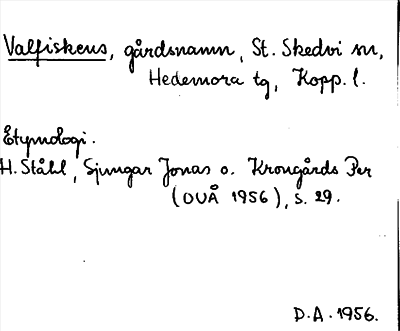 Valfiskens, gårdsnamn, St. Skedvi sn,
Hedemora tg, Kopp. l.
Etymologi.
H. Ståhl, Sjungar Jonas o. Krongårds Per
(DUÅ 1956), s. 29.
D.A. 1956.